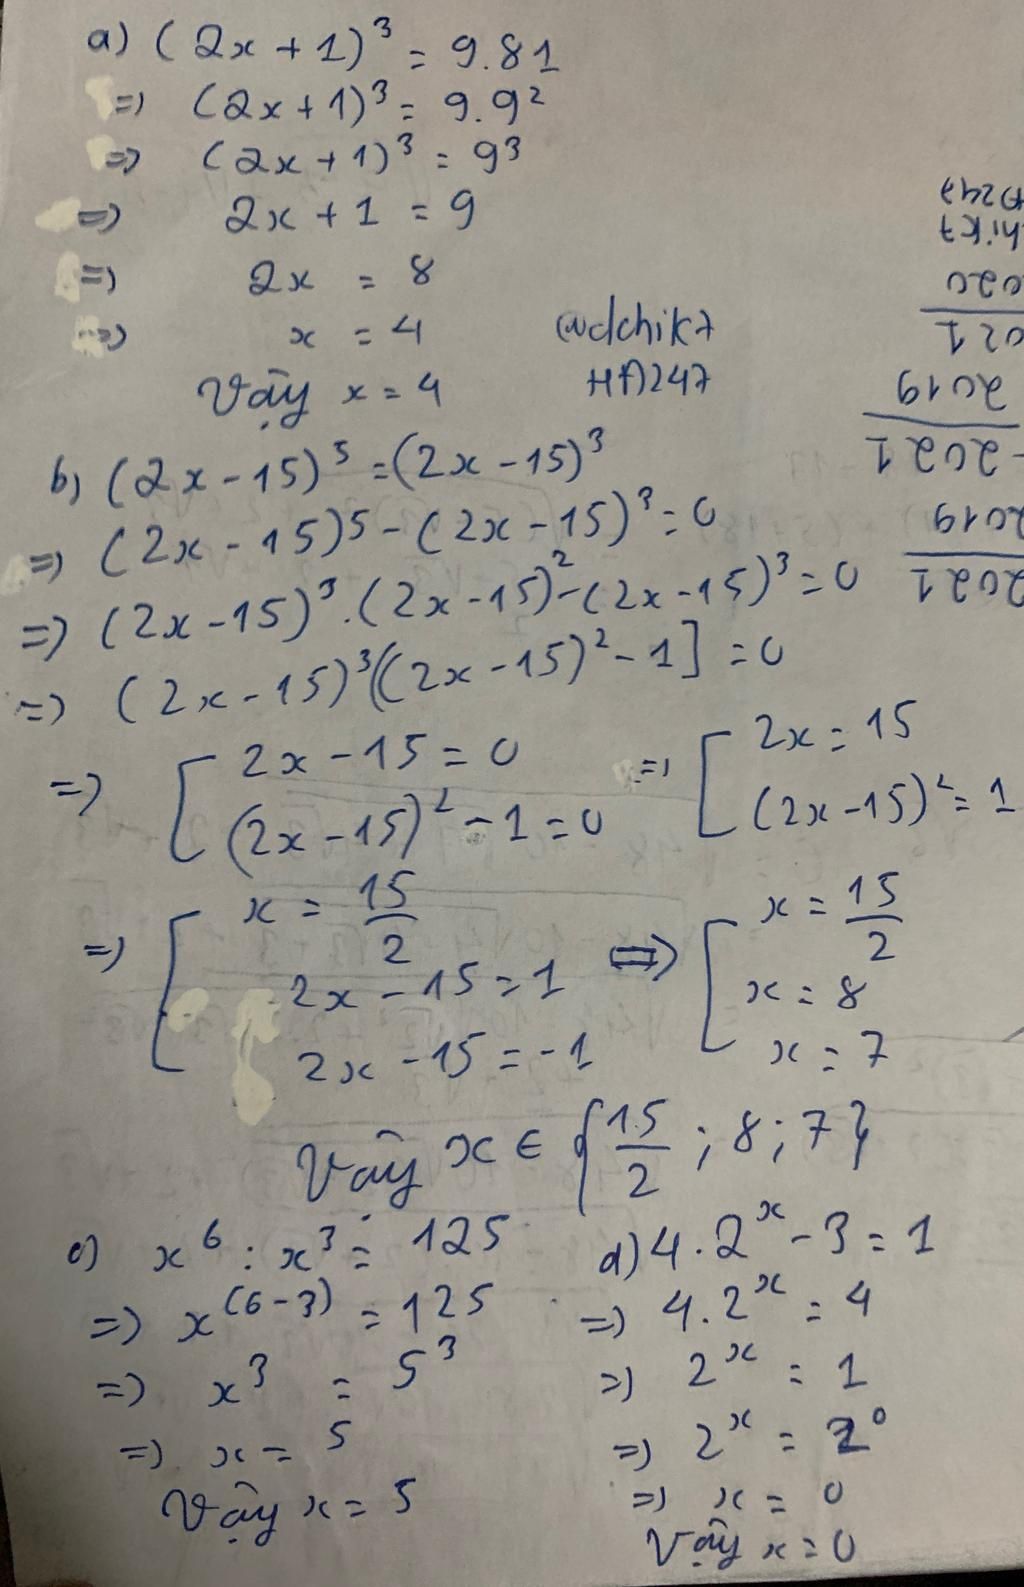 a) (2x + 1)³ = 9.81
=> (2x + 1)³ = 9.9²
=> (2x + 1)³ = 9³
=> 2x + 1 = 9
=> 2x = 8
=> x = 4
Vậy x = 4
@dchik7
HA247
b) (2x - 15)⁵ = (2x - 15)³
=> (2x - 15)⁵ - (2x - 15)³ = 0
=> (2x - 15)³ . (2x - 15)² - (2x - 15)³ = 0
=> (2x - 15)³ [(2x - 15)² - 1] = 0
=> [ 2x - 15 = 0 => [ 2x = 15
(2x - 15)² - 1 = 0 (2x - 15)² = 1
=> [ x = 15/2 <=> [ x = 15/2
2x - 15 = 1 x = 8
2x - 15 = -1 x = 7
Vậy x ∈ {15/2 ; 8 ; 7}
c) x⁶ : x³ = 125
=> x⁽⁶⁻³⁾ = 125
=> x³ = 5³
=> x = 5
Vậy x = 5
d) 4 . 2ˣ - 3 = 1
=> 4 . 2ˣ = 4
=> 2ˣ = 1
=> 2ˣ = 2⁰
=> x = 0
Vậy x = 0
2021
2019
2021
2019